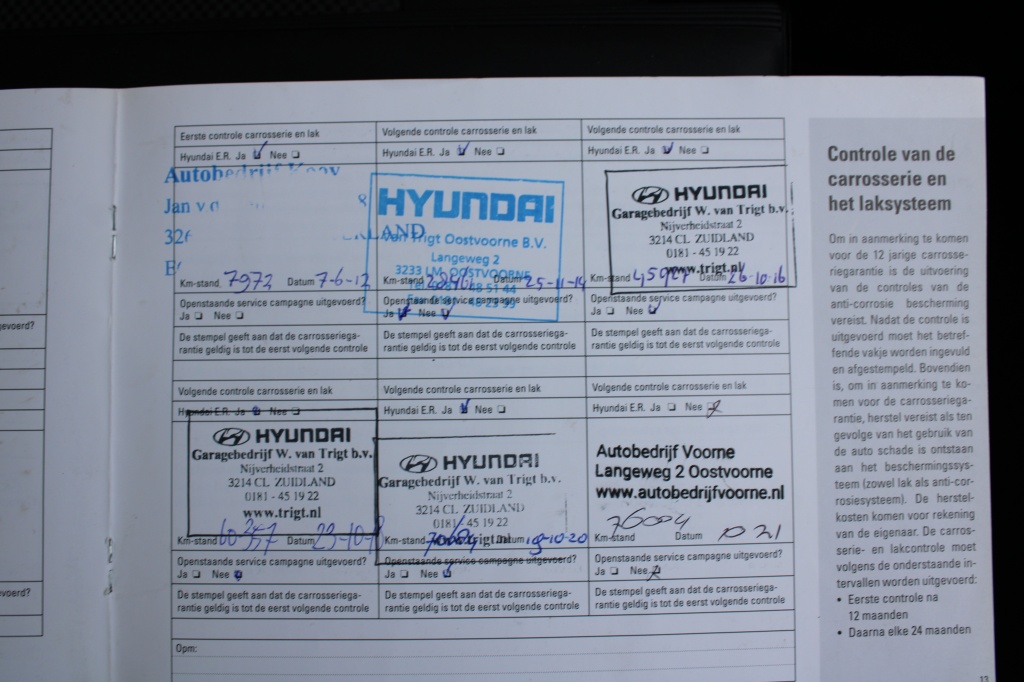 Eerste controle carrosserie en lak
Hyundai E.R. Ja Nee
Autobedrijf
Jan v
Km-stand 7972 Datum 7-6-12
Openstaande service campagne uitgevoerd?
Ja Nee
De stempel geeft aan dat de carrosseriega-
rantie geldig is tot de eerst volgende controle
Volgende controle carrosserie en lak
Hyundai E.R. Ja Nee
HYUNDAI
Van Trigt Oostvoorne B.V.
Langeweg 2
3233 LM OOSTVOORNE
Km-stand Datum 25-11-14
Openstaande service campagne uitgevoerd?
Ja Nee
De stempel geeft aan dat de carrosseriega-
rantie geldig is tot de eerst volgende controle
Volgende controle carrosserie en lak
Hyundai E.R. Ja Nee
HYUNDAI
Garagebedrijf W. van Trigt b.v.
Nijverheidstraat 2
3214 CL ZUIDLAND
0181 - 45 19 22
www.trigt.nl
Km-stand Datum 26-10-16
Openstaande service campagne uitgevoerd?
Ja Nee
De stempel geeft aan dat de carrosseriega-
rantie geldig is tot de eerst volgende controle
Volgende controle carrosserie en lak
Hyundai E.R. Ja Nee
HYUNDAI
Garagebedrijf W. van Trigt b.v.
Nijverheidstraat 2
3214 CL ZUIDLAND
0181 - 45 19 22
www.trigt.nl
Km-stand Datum
Openstaande service campagne uitgevoerd?
Ja Nee
De stempel geeft aan dat de carrosseriega-
rantie geldig is tot de eerst volgende controle
Volgende controle carrosserie en lak
Hyundai E.R. Ja Nee
HYUNDAI
Garagebedrijf W. van Trigt b.v.
Nijverheidstraat 2
3214 CL ZUIDLAND
0181 - 45 19 22
www.trigt.nl
Km-stand Datum 19-10-20
Openstaande service campagne uitgevoerd?
Ja Nee
De stempel geeft aan dat de carrosseriega-
rantie geldig is tot de eerst volgende controle
Volgende controle carrosserie en lak
Hyundai E.R. Ja Nee
Autobedrijf Voorne
Langeweg 2 Oostvoorne
www.autobedrijfvoorne.nl
76004
Km-stand Datum
Openstaande service campagne uitgevoerd?
Ja Nee
De stempel geeft aan dat de carrosseriega-
rantie geldig is tot de eerst volgende controle
Opm:
gevoerd?
Controle van de
carrosserie en
het laksysteem
Om in aanmerking te komen
voor de 12 jarige carrosse-
riegarantie is de uitvoering
van de controles van de
anti-corrosie bescherming
vereist. Nadat de controle is
uitgevoerd moet het betref-
fende vakje worden ingevuld
en afgestempeld. Bovendien
is, om in aanmerking te ko-
men voor de carrosseriega-
rantie, herstel vereist als ten
gevolge van het gebruik van
de auto schade is ontstaan
aan het beschermingssys-
teem (zowel lak als anti-cor-
rosiesysteem). De herstel-
kosten komen voor rekening
van de eigenaar. De carros-
serie- en lakcontrole moet
volgens de onderstaande in-
tervallen worden uitgevoerd:
• Eerste controle na
12 maanden
• Daarna elke 24 maanden
13